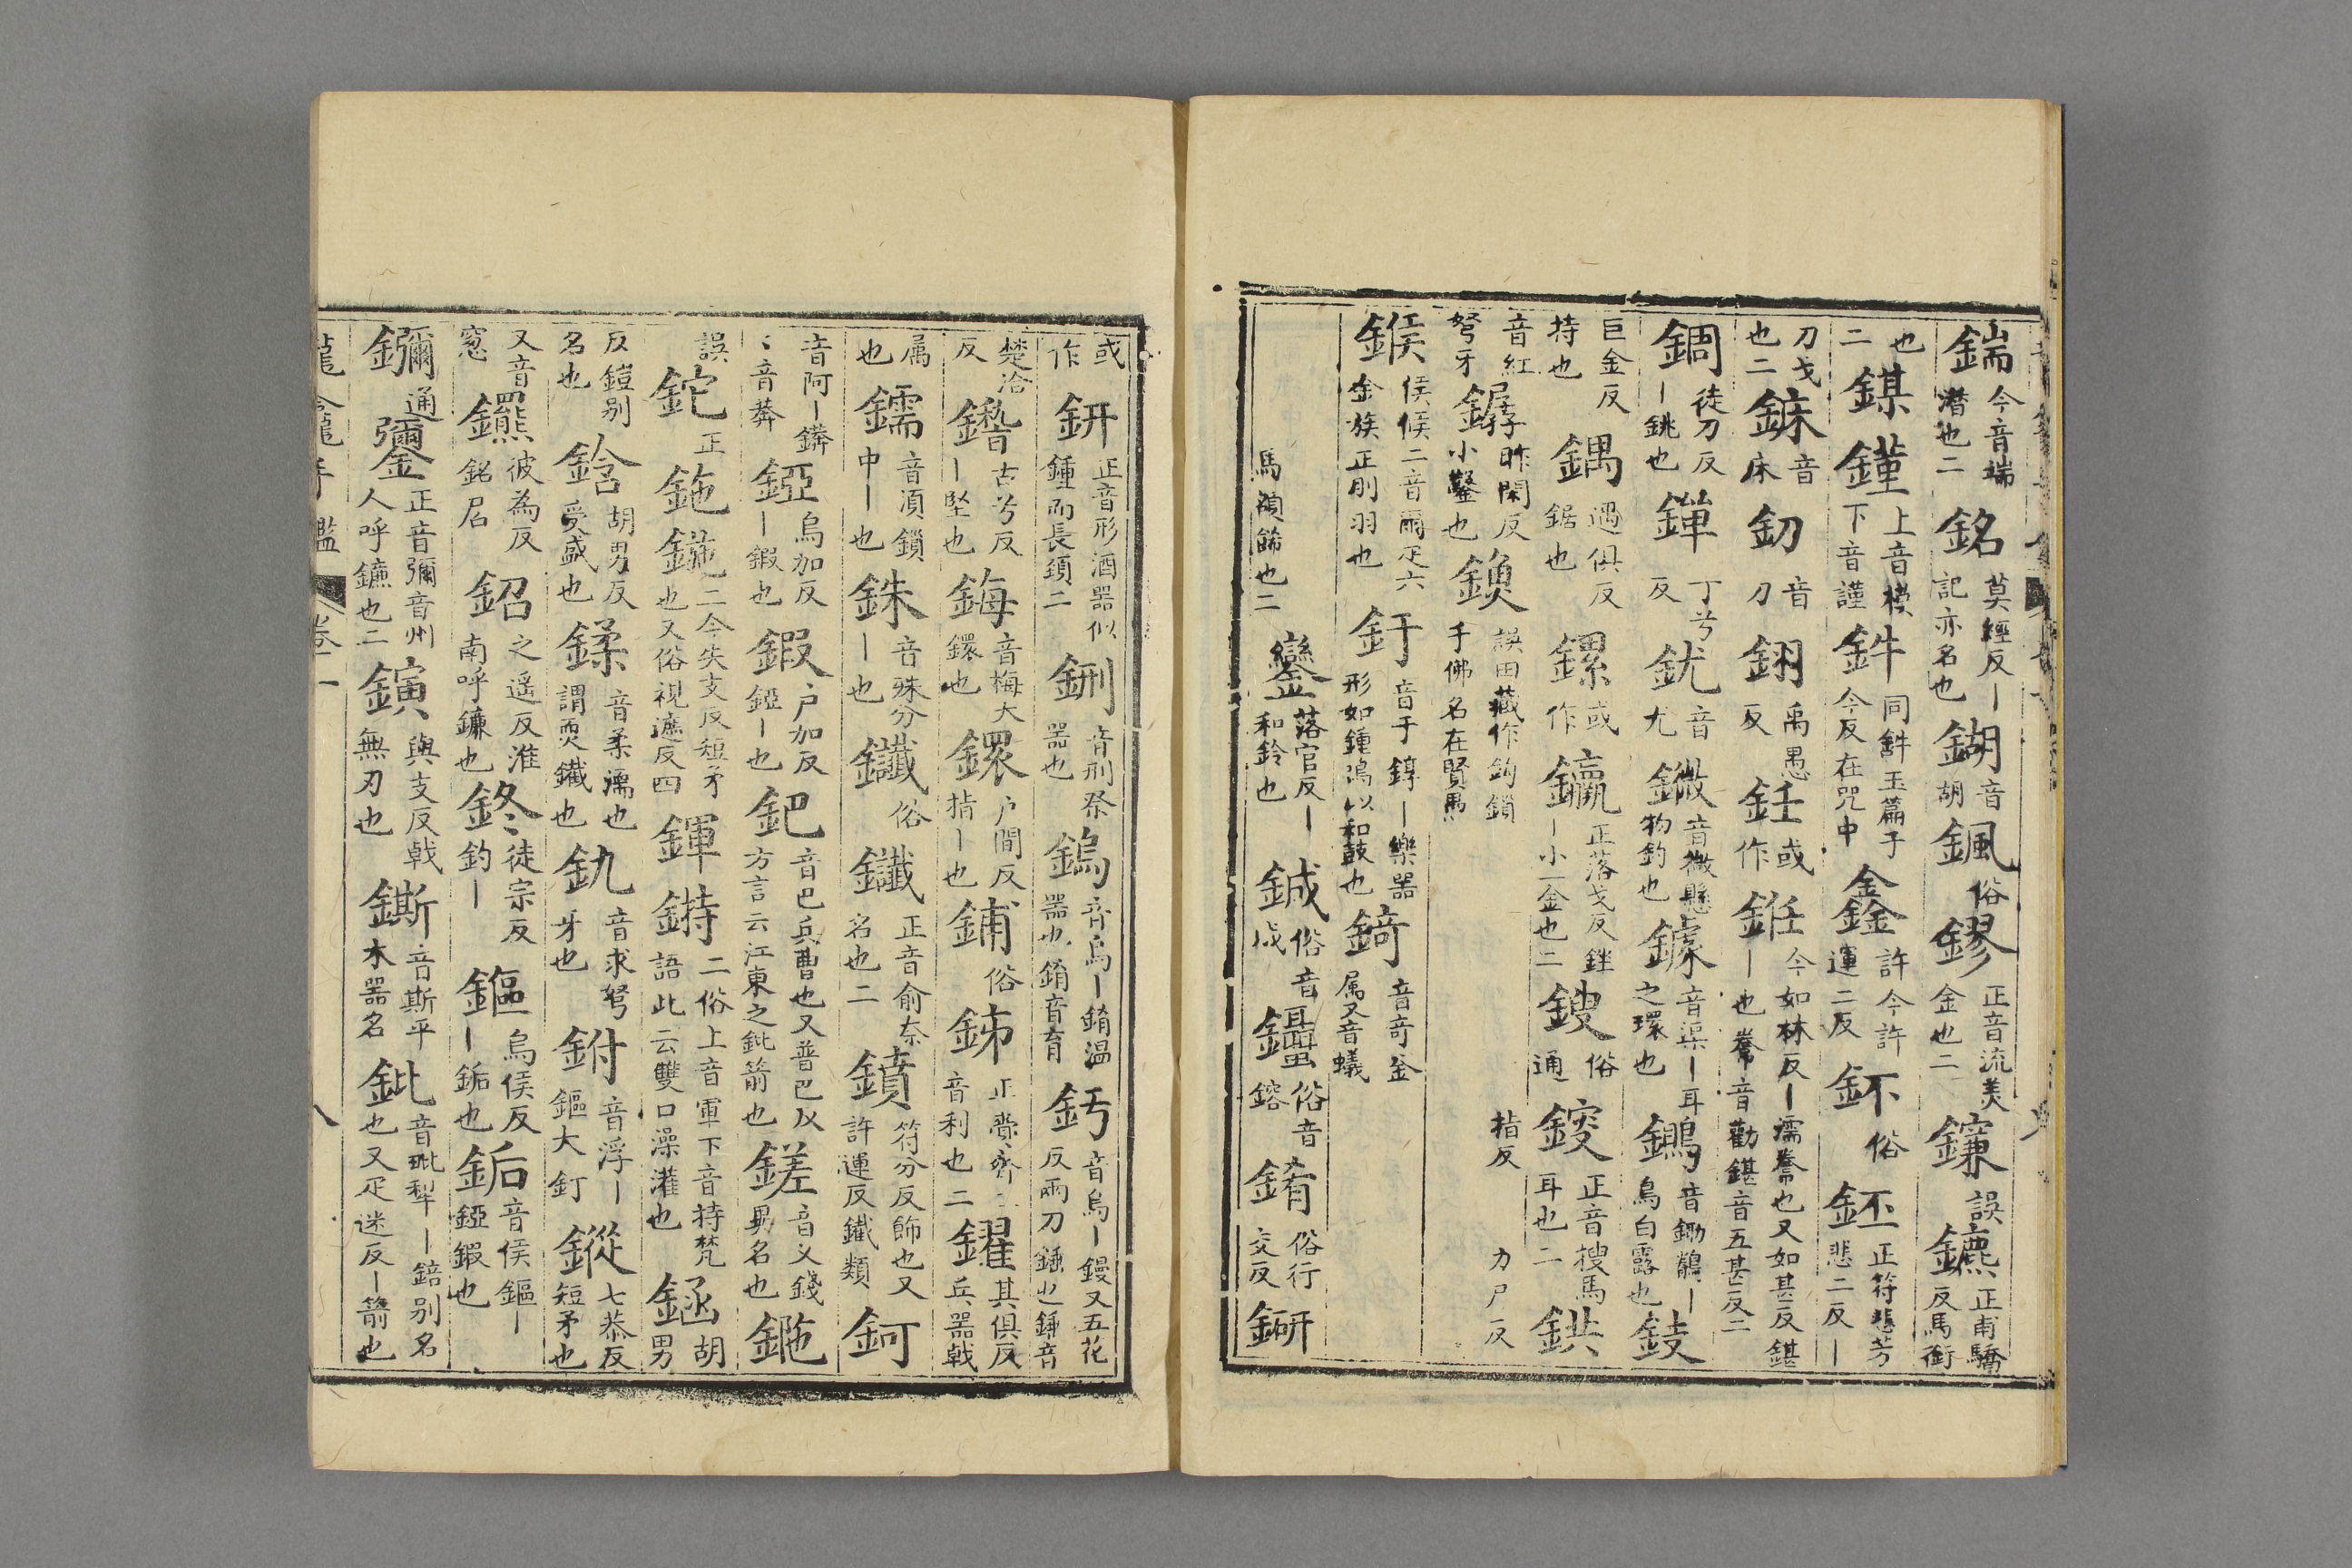 鍴今音端潜也二銘莫經反丨記亦名也鍸音胡鍢俗鏐正音流美金也二鎌誤鑣正甫驕反馬銜
也二鍱鏷上音模下音謹鉡同鉡玉篇子今反在咒中鑫許今許運二反鈈俗鉟正符悲芳悲二反丨
刀戈也二鏼音床釖音刀鈅禹愚反鈓或作銋今如林反丨濡卷也又如甚反鍖也卷音勸鍖音五甚反二
錭徒刀反丨銚也鏎丁兮反鈂音尤鏾音微懸物鈎也鐻音渠丨耳之環也鷠音鋤鶺丨鳥白露也鈘
巨金反持也鍝遇俱反鋸也鏍或作鑸正落戈反銼丨小金也二鎪俗通鋑正音搜馬耳也二鉷
音紅弩牙鏫昨閑反小鑿也鍨誤田藏作鈎鎖手佛名在賢馬指反力尸反
鍭侯候二音爾疋六金族正削羽也釪音于錞丨樂器形如鍾鳴以和鼓也錡音奇釜属又音蟻
馬額飾也二鑾落官反丨和鈴也鋮俗音成鑷俗音鎔䤝俗行交反鈃
或作鈃正音形酒器似鍾而長頸二鉶音刑祭器也鎢音烏丨錥温器也錥音育釫音烏丨鏝又五花反兩刀鍤也鍤音
楚洽反鐕古兮反丨堅也鋂音梅大鐶也鐶户間反指丨也鋪俗銻正音齊二音利也二鑺其俱反兵器戟
属也鑐音須鎖中丨也銖音殊分丨也鑯俗鑯正音俞奈名也二鐼符分反飾也又許運反鐵類鈳
音阿丨鏻音莽錏烏加反丨鍜也鍜户加反錏丨也鈀音巴兵曹也又普巴反方言云江東之鈚箭也鎈音叉錢異名也鍦
誤鉈正鉇鍦二今失支反短矛也又俗視遮反四鍕䥭二俗上音軍下音持梵語此云雙口澡灌也鋡胡男
反鎧别名也鋡胡男反受盛也鍒音柔濡也謂耎鐵也釚音求弩牙也鉜音浮丨鏂大釘鏦七恭反短矛也
又音窓鑼彼為反銘石鉊之遥反淮南呼鎌也鉖徒宗反釣丨鏂烏侯反丨銗也銗音侯鏂丨錏鍜也
鑈通鑋正音彌青州人呼鎌也二鏔與支反戟無刃也鐁音斯平木器名鈚音毗犁丨錇别名也又疋迷反丨箭也
龍龕手鑑 卷一 八